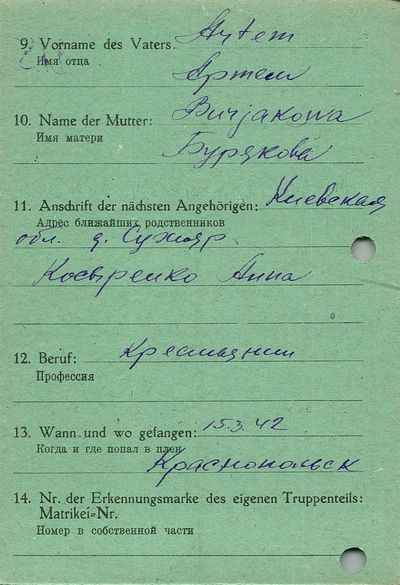 9. Vorname des Vaters. Artem
Имя отца
Артем
10. Name der Mutter: Burjakowa
Имя матери
Бурякова
11. Anschrift der nächsten Angehörigen: Киевская
Адрес ближайших родственников
обл. д. Сухояр
Косыренко Анна
12. Beruf: Крестьянин
Профессия
13. Wann und wo gefangen: 15.3.42
Когда и где попал в плен
Краснопольск
14. Nr. der Erkennungsmarke des eigenen Truppenteils:
Matrikei-Nr.
Номер в собственной части